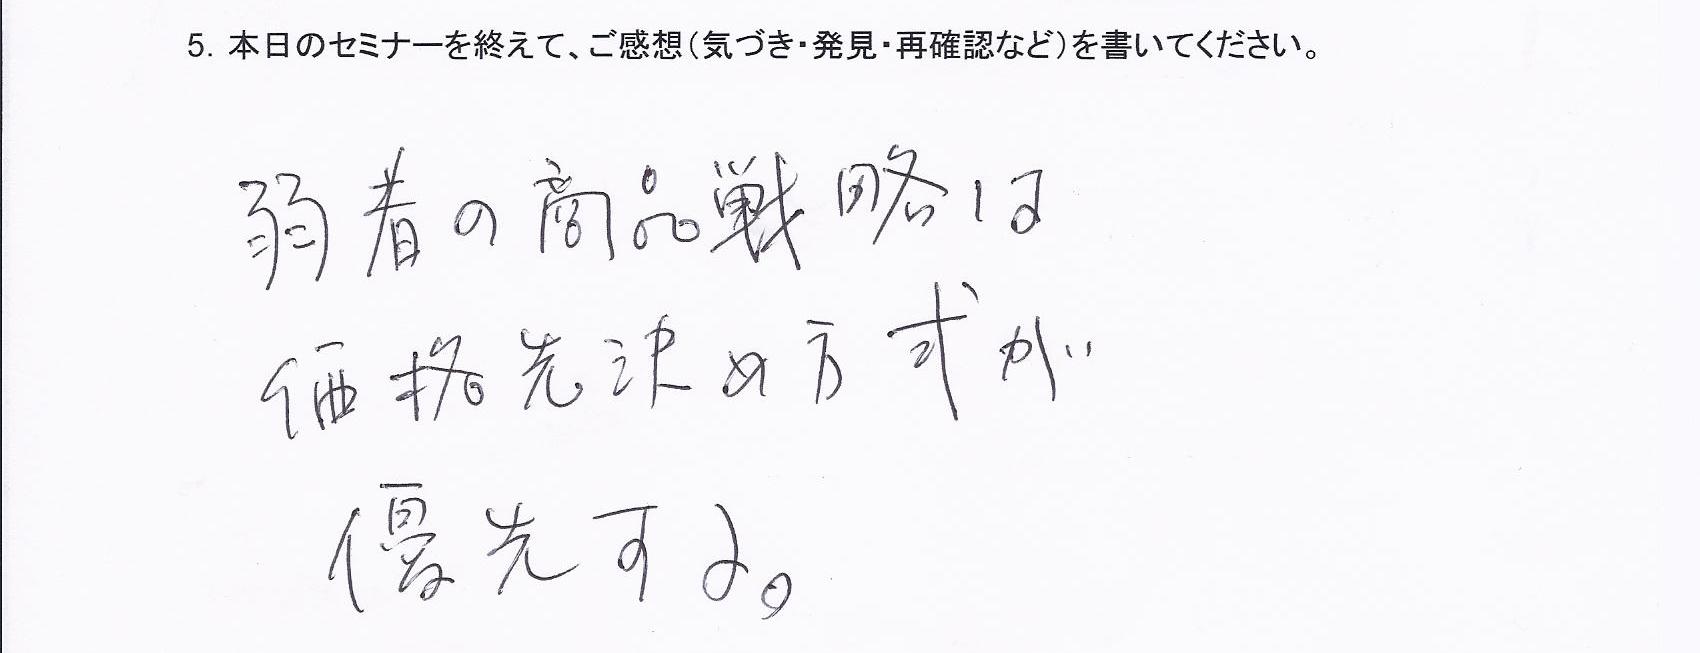 5. 本日のセミナーを終えて、ご感想（気づき・発見・再確認など）を書いてください。
弱者の商品戦略は
価格先決め方式が
優先する。